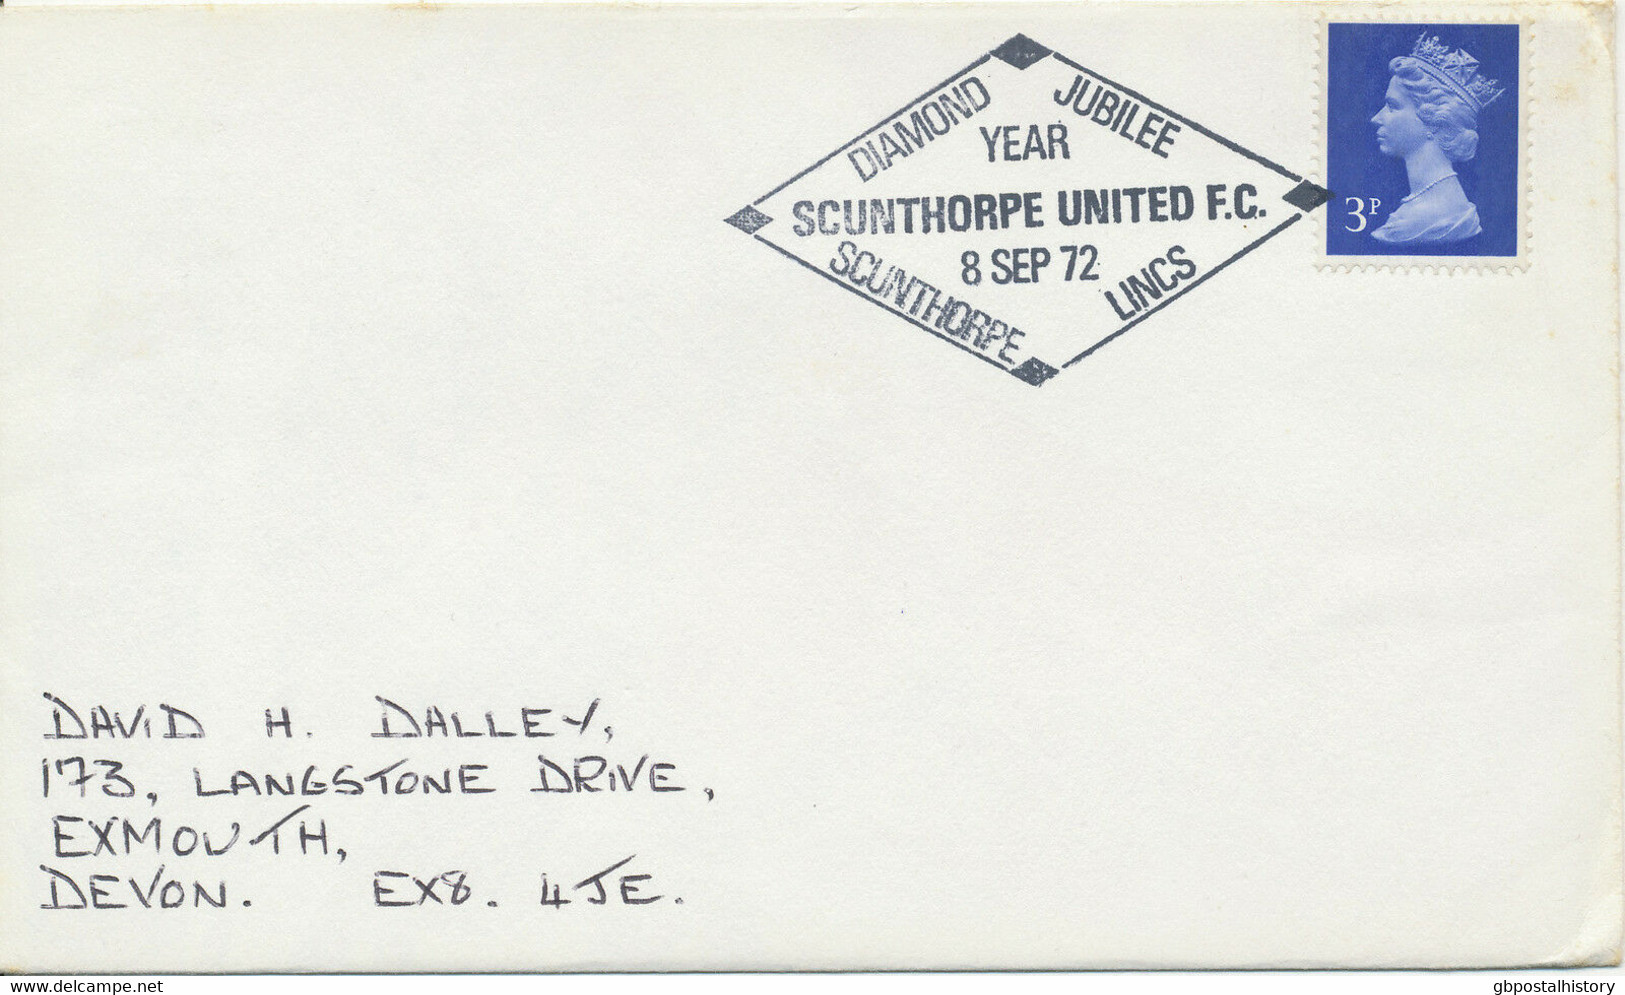 DIAMOND JUBILEE
YEAR
SCUNTHORPE UNITED F.C.
8 SEP 72
SCUNTHORPE LINCS
3P
DAVID H. DALLEY,
173, LANGSTONE DRIVE,
EXMOUTH,
DEVON. EX8. 4JE.
delcampe.net
gbpostalhistory